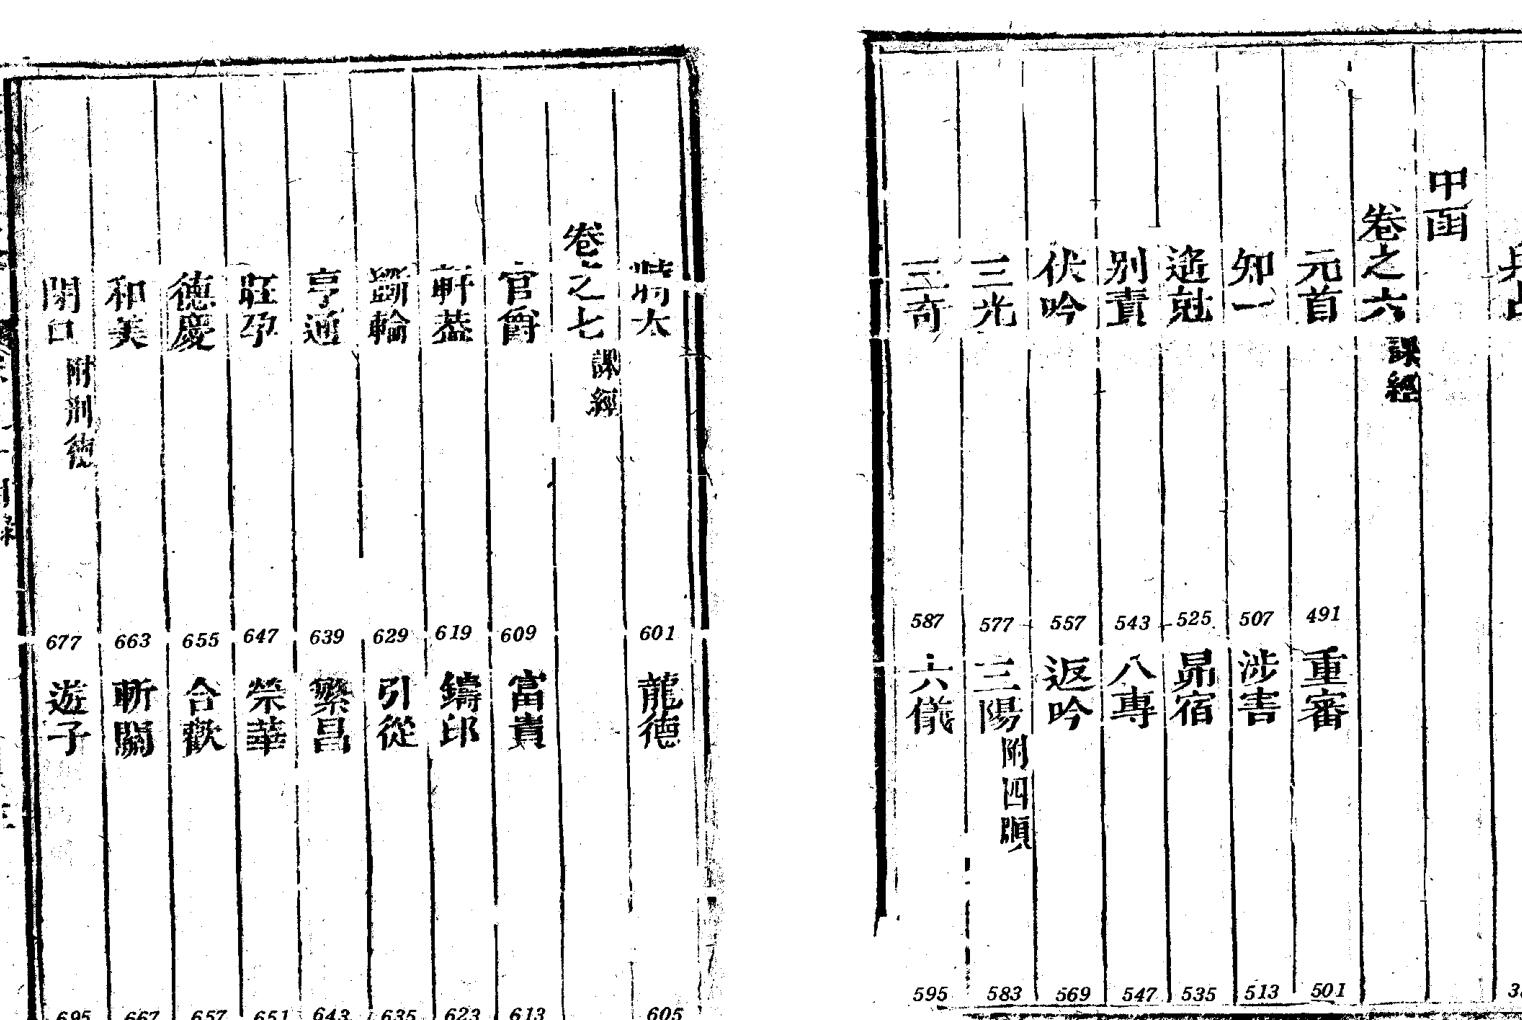 甲函
卷之六 課經
元首 491 重審 501
知一 507 涉害 513
遙尅 525 昴宿 535
別責 543 八專 547
伏吟 557 返吟 569
三光 577 三陽 附四順 583
三奇 587 六儀 595
時太 601 龍德 605
卷之七 課經
官爵 609 富貴 613
軒葢 619 鑄印 623
斲輪 629 引從 635
亨通 639 繁昌 643
旺孕 647 榮華 651
德慶 655 合歡 657
和美 663 斬關 667
閉口 附刑德 677 遊子 695